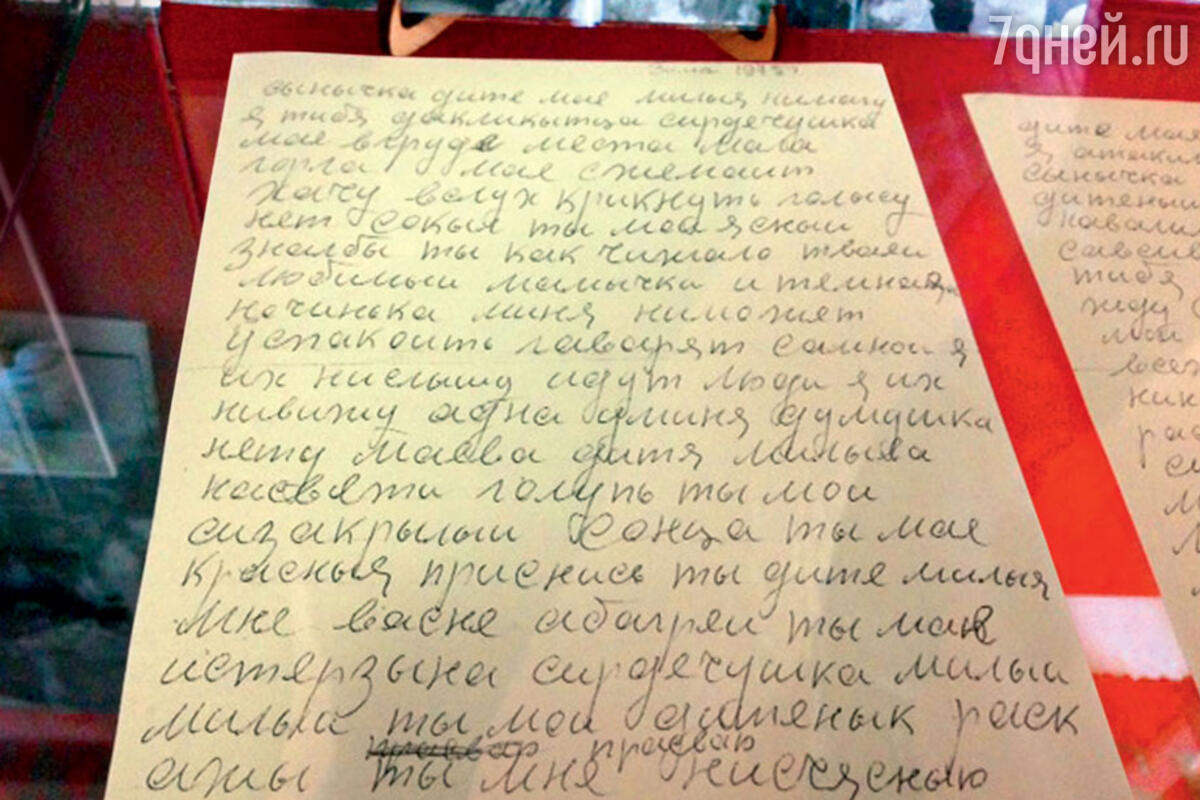 7дней.ru
Зима 1975 г
сыничка дите мае милыя нимагу
я тибя дакликытца сирдечушка
мае вгруде места мала
горла мае сжемаит
хачу вслух крикнуть голысу
нет сокыл ты мои ясныи
зналбы ты как чижало тваеи
любимыи мамычки и темная
ночинька миня ниможет
успакоить гаварят самнои я
их нислышу идут люди я их
нивижу адна уминя думушка
нету маева дитя милыва
насвети голупь ты мои
сизакрылыи сонца ты мае
красныя приснись ты дите милыя
мне васне абагреи ты мае
истерзына сирдечушка милыи
милыи ты мои дитенык раск
прасваю
ажы ты мне нисчясную
дите мая
я атакил
сыничка
дитены
навали
савсем
тибя
жду
мои
всех
ник
рас
си
м